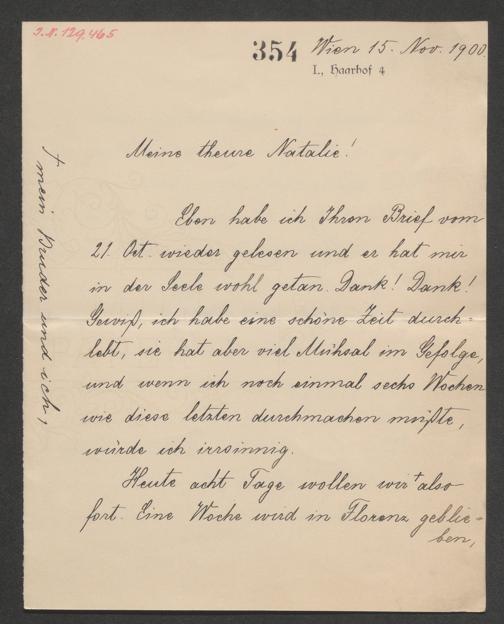 J.N. 129.465
354 Wien 15. Nov. 1900.
I., Haarhof 4
Meine theure Natalie!
Eben habe ich Ihren Brief vom
21. Oct. wieder gelesen und er hat mir
in der Seele wohl getan. Dank! Dank!
Gewiß, ich habe eine schöne Zeit durch-
lebt, sie hat aber viel Mühsal im Gefolge,
und wenn ich noch einmal sechs Wochen
wie diese letzten durchmachen müßte,
würde ich irrsinnig.
Heute acht Tage wollen wir + also
fort. Eine Woche wird in Florenz geblie-
ben,
+ mein Bruder und ich,